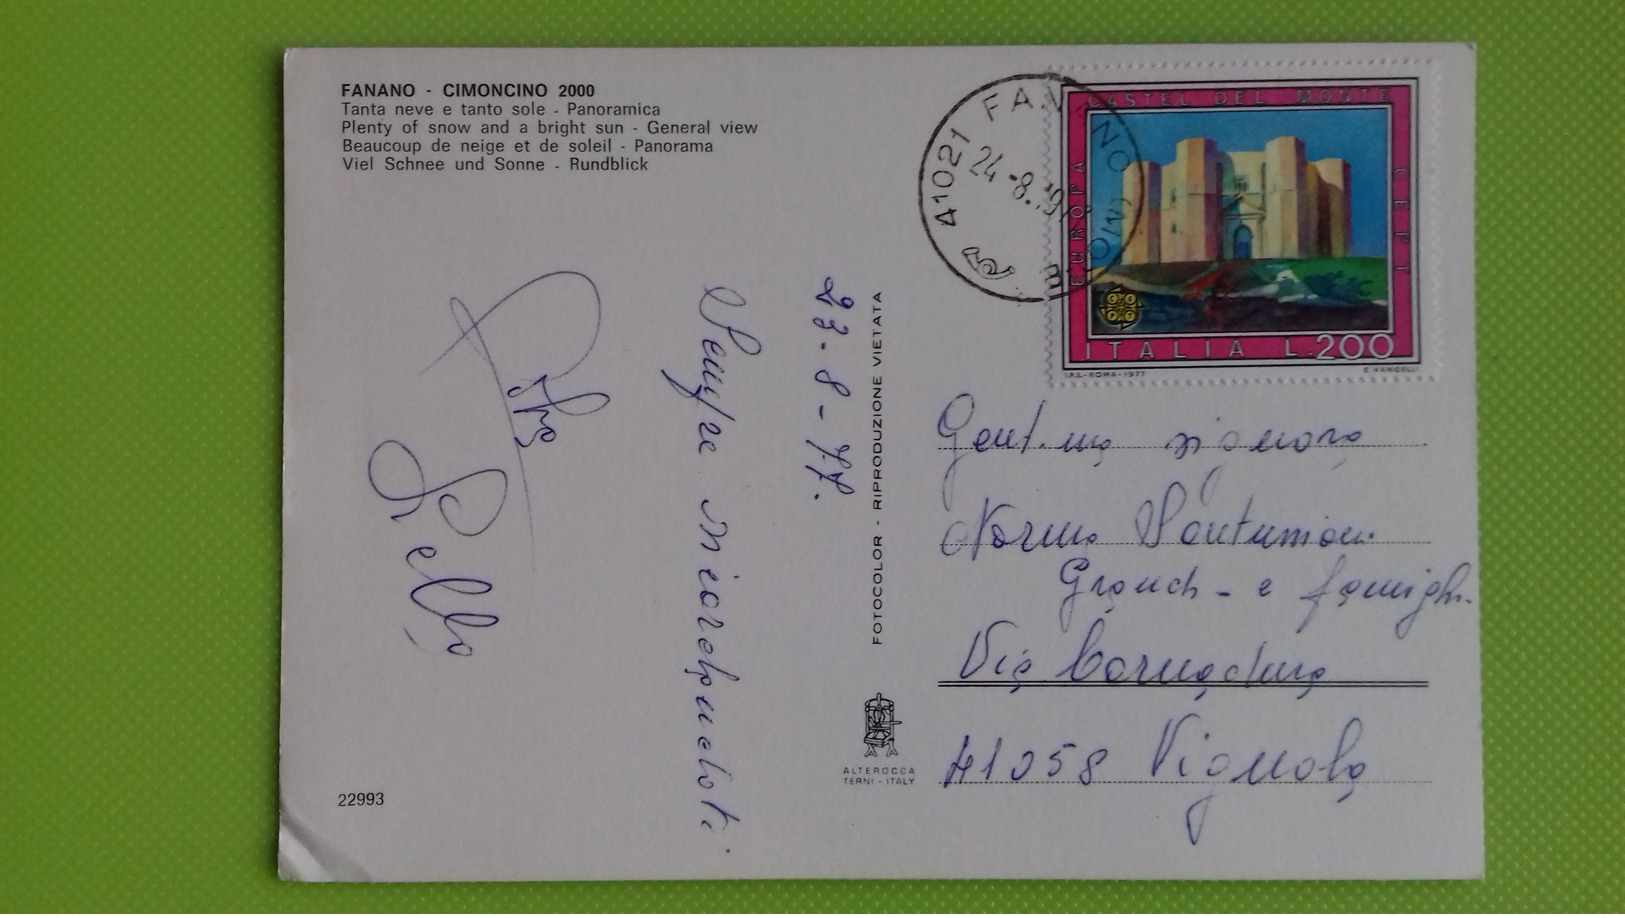 FANANO - CIMONCINO 2000
Tanta neve e tanto sole - Panoramica
Plenty of snow and a bright sun - General view
Beaucoup de neige et de soleil - Panorama
Viel Schnee und Sonne - Rundblick
41021 FANANO (MO)
24 -8.
CASTEL DEL MONTE
EUROPA
CEPT
CEPT
ITALIA L.200
I.P.S.-ROMA-1977
E VANGELLI
23-8-77.
Sempre ricordandoti.
FOTOCOLOR - RIPRODUZIONE VIETATA
Gent.ma signora
Norma
e famigl.
Via
41058 Vignola
ALTEROCCA
TERNI - ITALY
22993